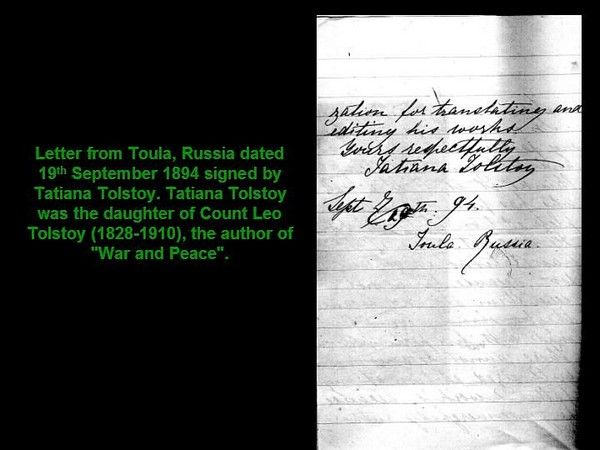 Letter from Toula, Russia dated
19th September 1894 signed by
Tatiana Tolstoy. Tatiana Tolstoy
was the daughter of Count Leo
Tolstoy (1828-1910), the author of
"War and Peace".
zation for translating and
editing his works
Yours respectfully
Tatiana Tolstoy
Sept 19th. 94.
Toula Russia.